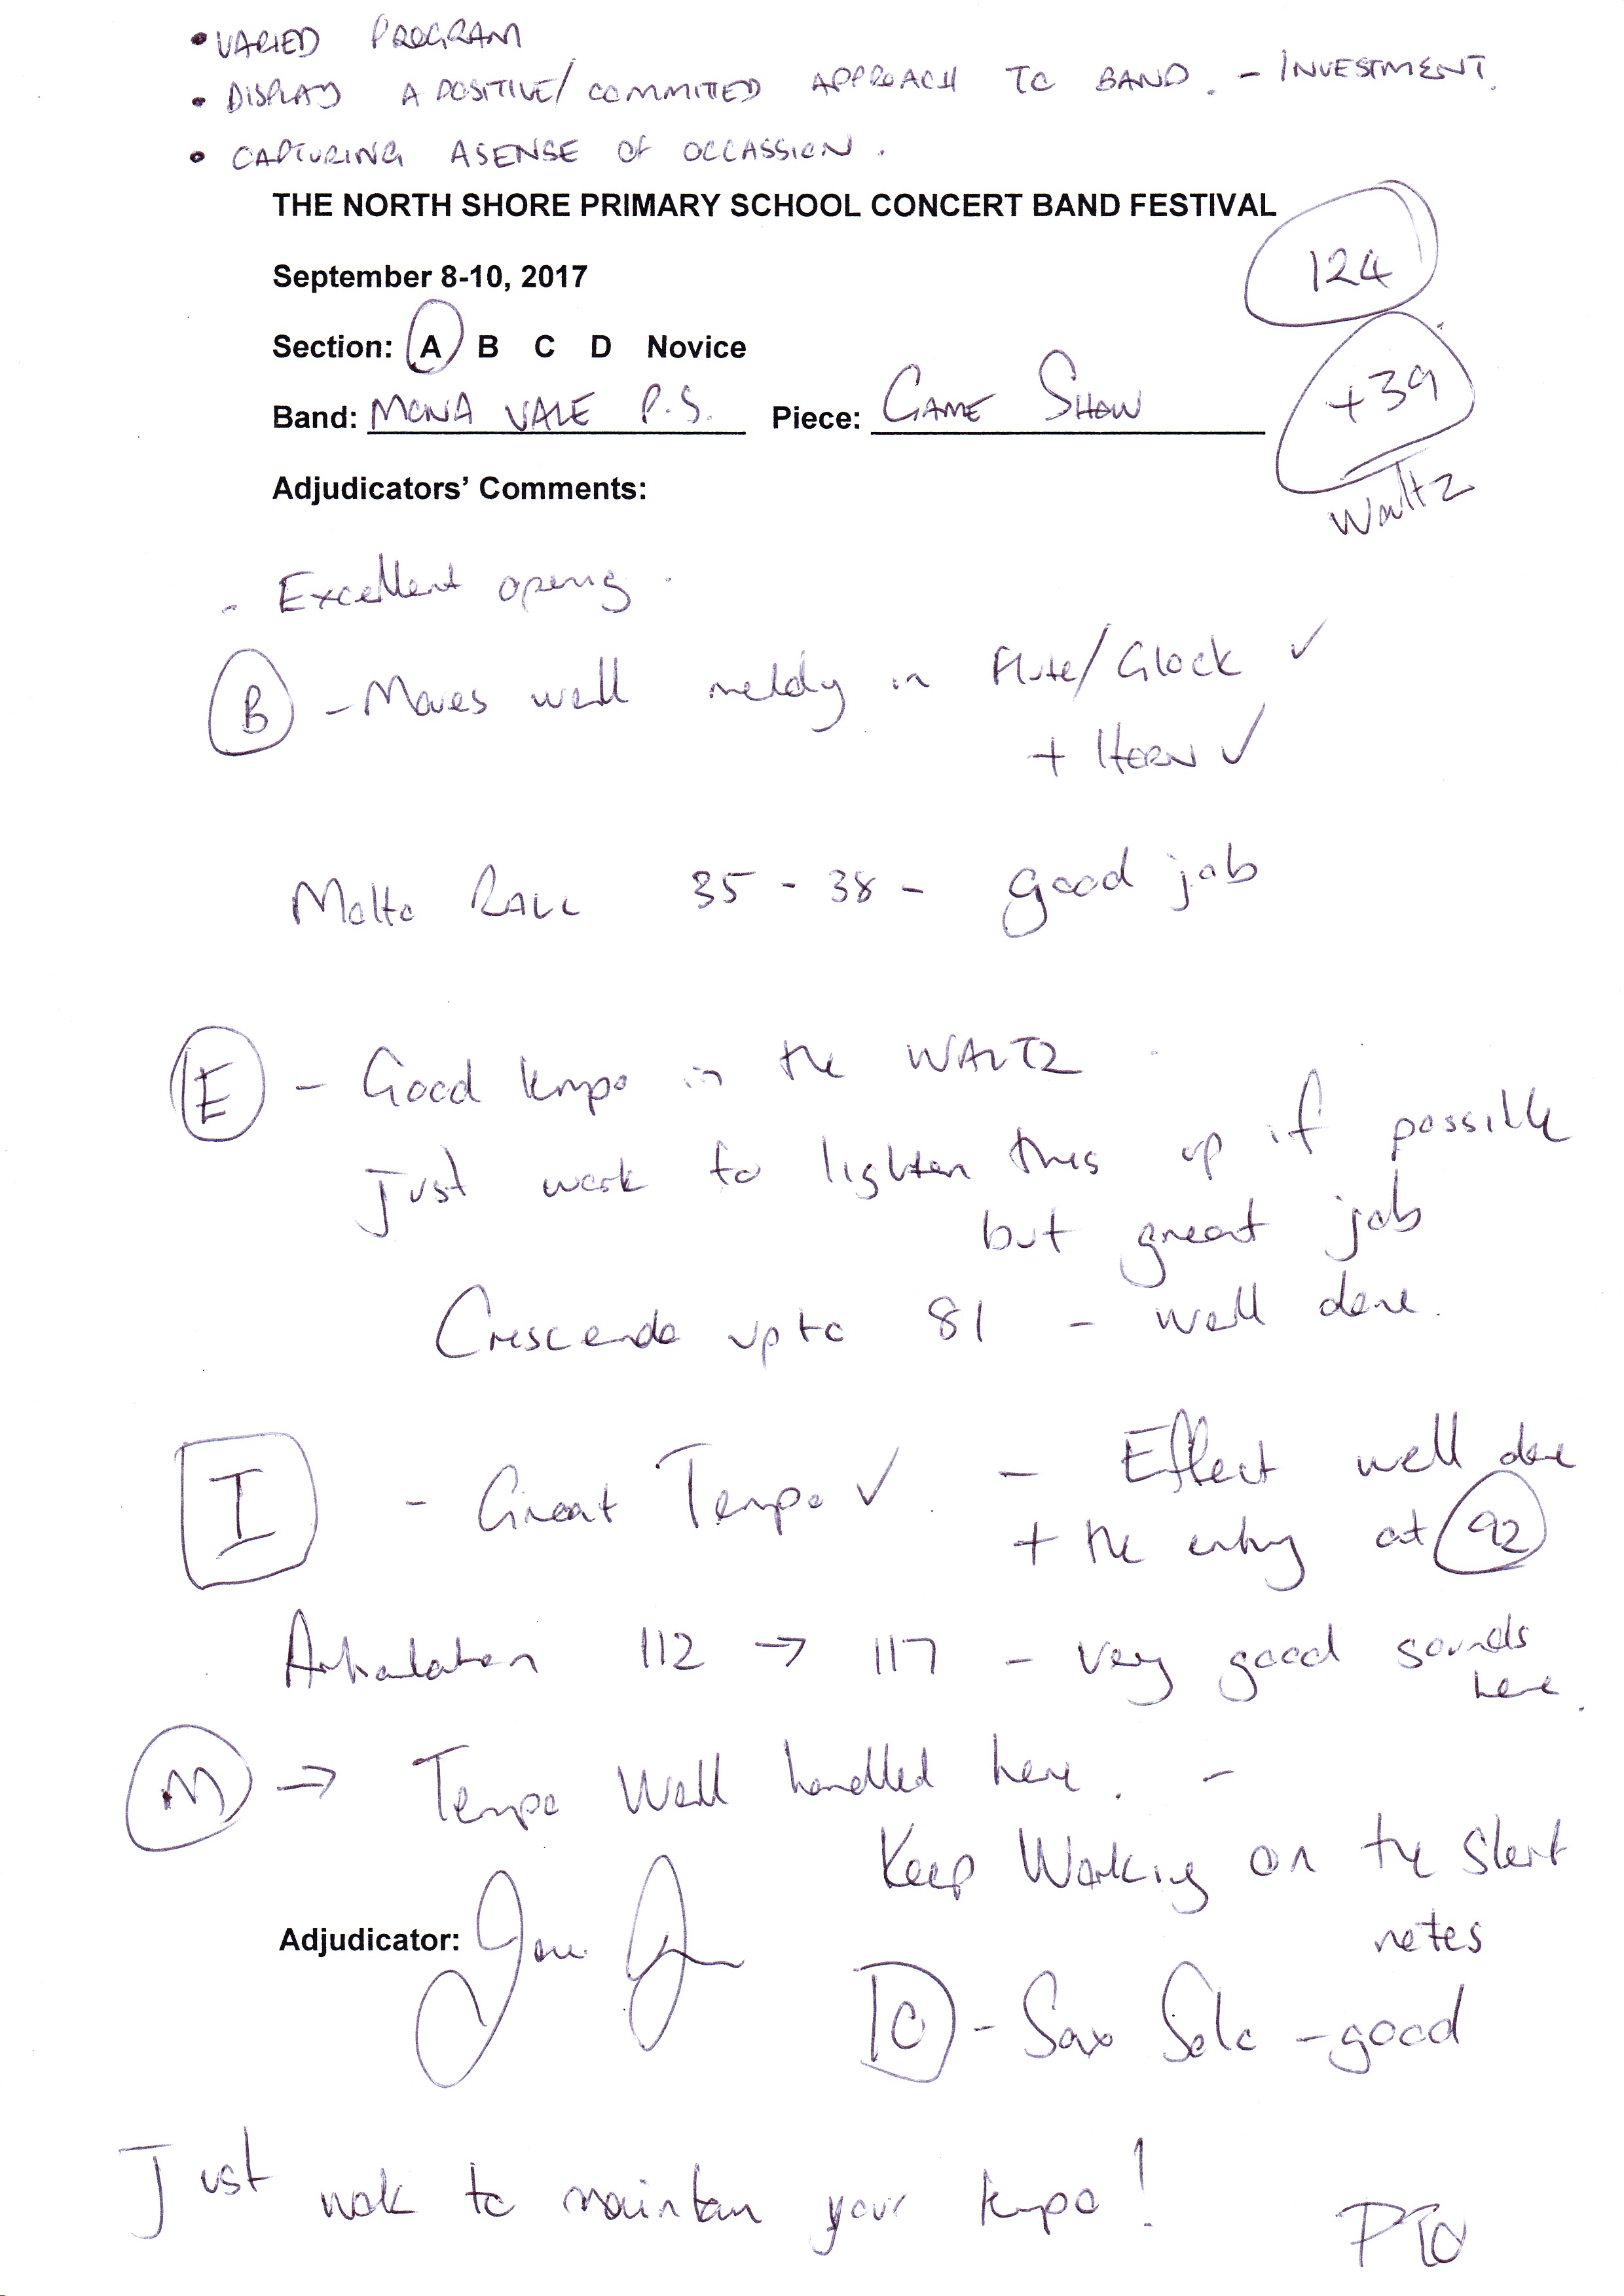 • VARIED PROGRAM
• DISPLAY A POSITIVE/ COMMITTED APPROACH TO BAND. - INVESTMENT.
• CAPTURING A SENSE OF OCCASSION.
THE NORTH SHORE PRIMARY SCHOOL CONCERT BAND FESTIVAL
124
September 8-10, 2017
Section: A B C D Novice
+39
Band: MONA VALE P.S. Piece: GAME SHOW
Waltz
Adjudicators' Comments:
- Excellent opening.
B - Moves well melody in Flute/Glock ✓
+ HORN ✓
Molto RALL 35 - 38 - good job
E - Good tempo in the WALTZ
Just work to lighten this up if possible
but great job
Crescendo up to 81 - well done.
I - Great Tempo ✓ - Effect well done
+ the entry at 92
Articulation 112 → 117 - very good sounds
here.
M → Tempo Well handled here. -
Keep Working on the short
notes
Adjudicator:
- Sax Solo - good
Just work to maintain your tempo!
PTO